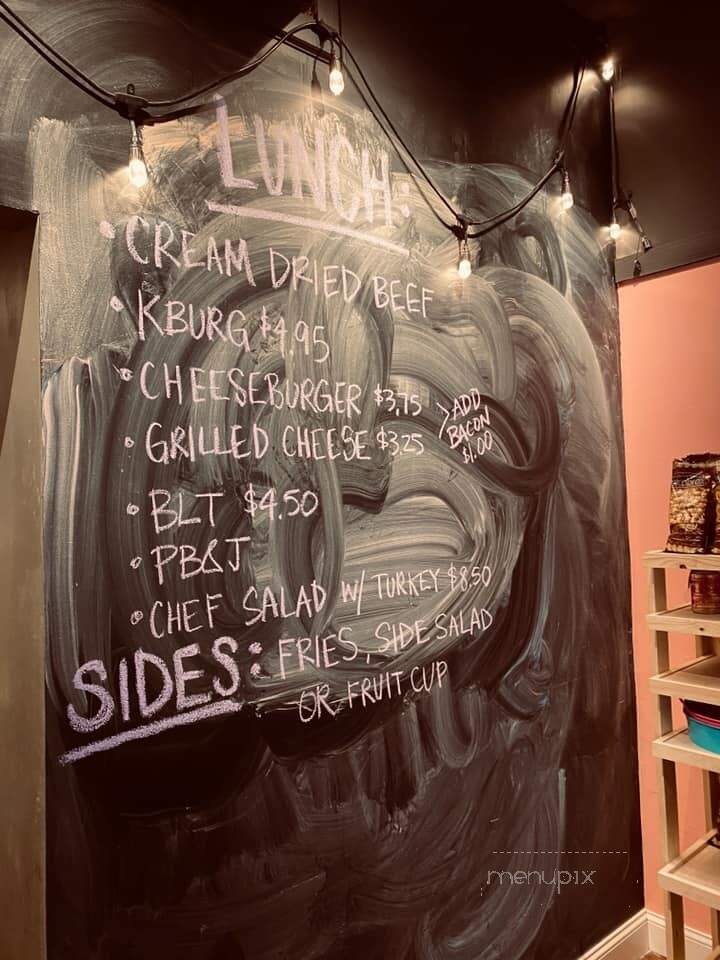 LUNCH:
• CREAM DRIED BEEF
• KBURG $4.95
• CHEESEBURGER $3.75
• GRILLED CHEESE $3.25
> ADD
BACON
$1.00
• BLT $4.50
• PB&J
• CHEF SALAD W/ TURKEY $8.50
SIDES: FRIES, SIDE SALAD
OR FRUIT CUP
menupix